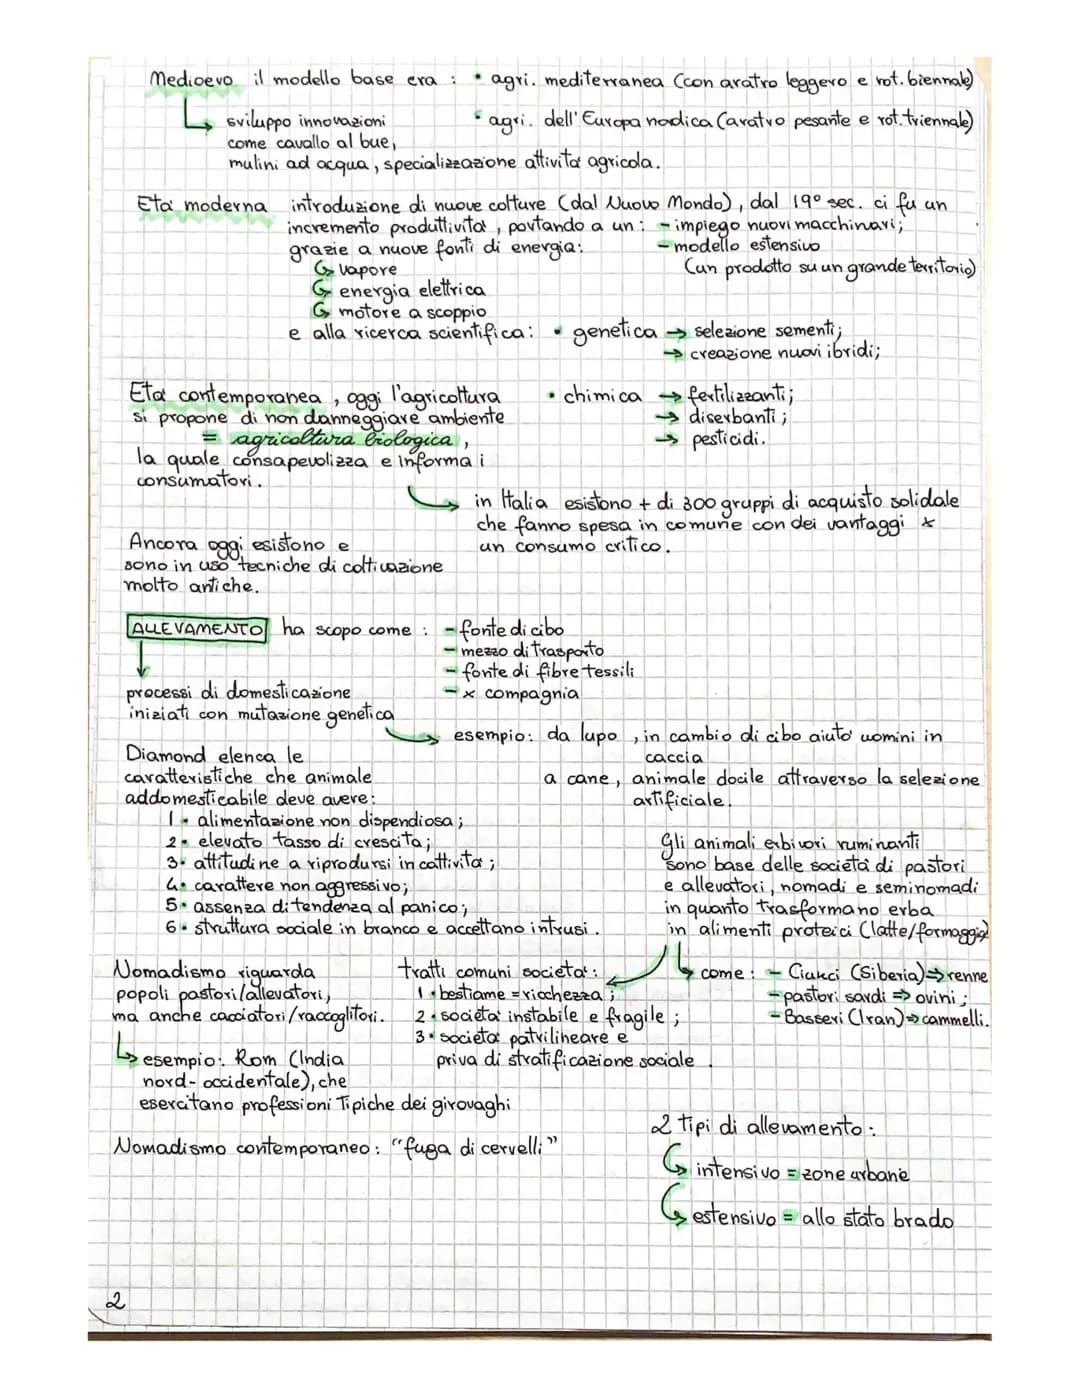 Medioevo il modello base era : • agri. mediterranea (con aratro leggero e rot. biennale)
sviluppo innovazioni • agri. dell'Europa nordica (aratro pesante e rot. triennale)
come cavallo al bue,
mulini ad acqua, specializzazione attività agricola.
Età moderna introduzione di nuove colture (dal Nuovo Mondo), dal 19° sec. ci fu un
incremento produttività, portando a un : - impiego nuovi macchinari;
grazie a nuove fonti di energia: - modello estensivo
vapore (un prodotto su un grande territorio)
energia elettrica
motore a scoppio
e alla ricerca scientifica: • genetica → selezione sementi;
→ creazione nuovi ibridi;
Età contemporanea, oggi l'agricoltura • chimica → fertilizzanti;
si propone di non danneggiare ambiente → diserbanti;
= agricoltura biologica, → pesticidi.
la quale consapevolizza e informa i
consumatori.
in Italia esistono + di 300 gruppi di acquisto solidale
che fanno spesa in comune con dei vantaggi x
un consumo critico.
Ancora oggi esistono e
sono in uso tecniche di coltivazione
molto antiche.
ALLEVAMENTO ha scopo come : - fonte di cibo
- mezzo di trasporto
- fonte di fibre tessili
- x compagnia
processi di domesticazione
iniziati con mutazione genetica
esempio: da lupo, in cambio di cibo aiutò uomini in
caccia
a cane, animale docile attraverso la selezione
artificiale.
Diamond elenca le
caratteristiche che animale
addomesticabile deve avere:
1• alimentazione non dispendiosa;
2• elevato tasso di crescita;
3• attitudine a riprodursi in cattività;
4• carattere non aggressivo;
5• assenza di tendenza al panico;
6• struttura sociale in branco e accettano intrusi.
Gli animali erbivori ruminanti
sono base delle società di pastori
e allevatori, nomadi e seminomadi
in quanto trasformano erba
in alimenti proteici (latte/formaggio)
come : - Ciukci (Siberia) ⇒ renne
- pastori sardi ⇒ ovini;
- Basseri (Iran) ⇒ cammelli.
Nomadismo riguarda
popoli pastori/allevatori,
ma anche cacciatori/raccoglitori.
tratti comuni società:
1• bestiame = ricchezza;
2• società instabile e fragile;
3• società patrilineare e
priva di stratificazione sociale.
esempio: Rom (India
nord-occidentale), che
esercitano professioni tipiche dei girovaghi
Nomadismo contemporaneo: "fuga di cervelli"
2 tipi di allevamento:
intensivo = zone urbane
estensivo = allo stato brado
2